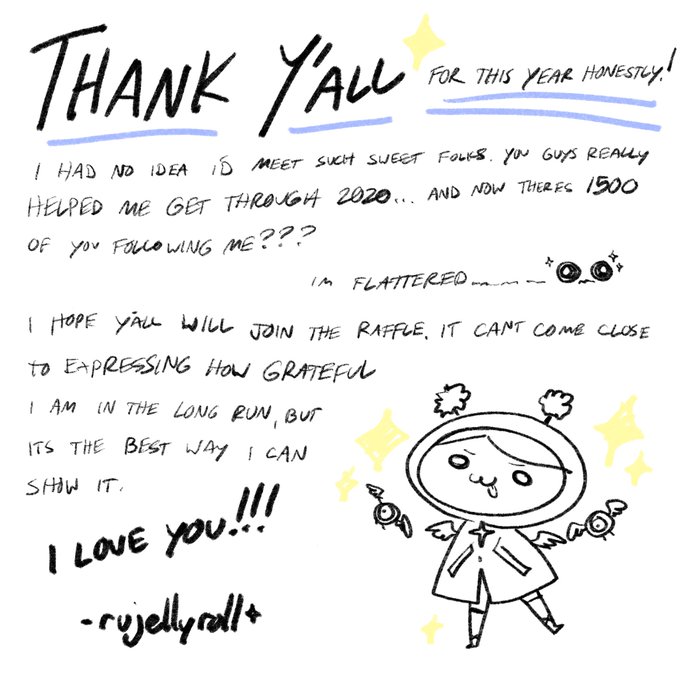 THANK Y'ALL FOR THIS YEAR HONESTLY!
I HAD NO IDEA ID MEET SUCH SWEET FOLKS. YOU GUYS REALLY
HELPED ME GET THROUGH 2020... AND NOW THERES 1500
OF YOU FOLLOWING ME???
IM FLATTERED
I HOPE Y'ALL WILL JOIN THE RAFFLE. IT CANT COME CLOSE
TO EXPRESSING HOW GRATEFUL
I AM IN THE LONG RUN, BUT
ITS THE BEST WAY I CAN
SHOW IT.
I LOVE YOU!!!
-rujellyroll